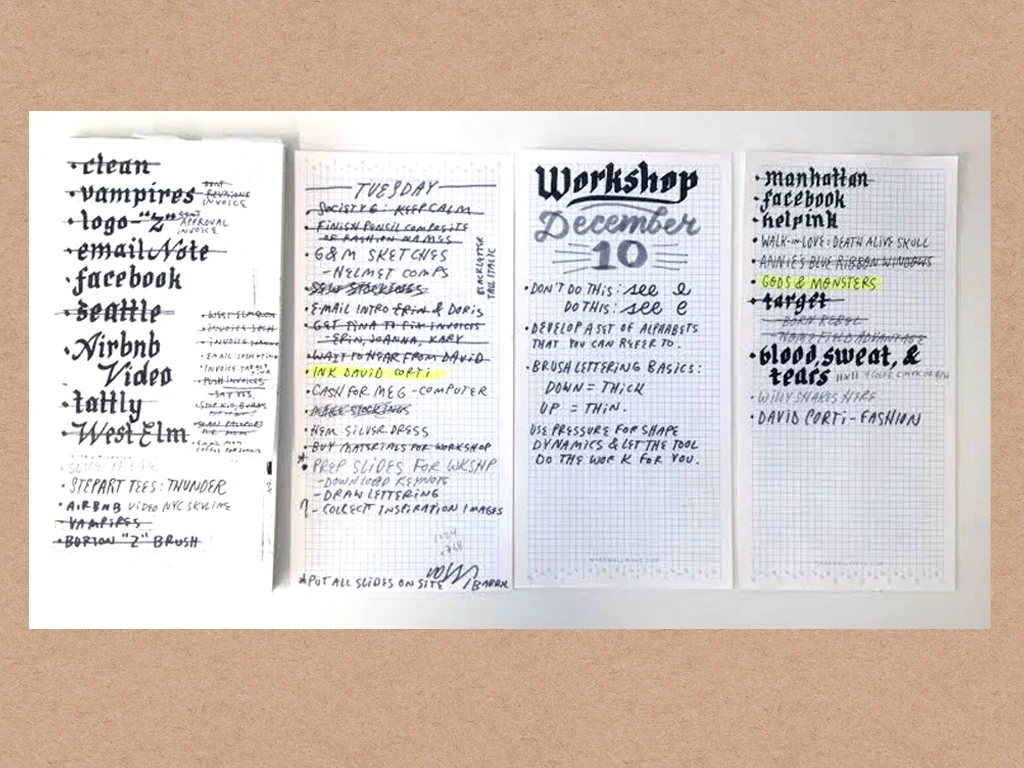 • clean
• vampires
SENT
REVISIONS
INVOICE
• logo-"Z"
SENT
APPROVAL
INVOICE
• email Note
• facebook
• seattle
• Airbnb
Video
• tattly
• West Elm
• SLICE OF LIFE
• STEPART TEES: THUNDER
• AIRBNB VIDEO NYC SKYLINE
• VAMPIRES
• BORTON "Z" BRUSH
• WEST ELM
TUESDAY
• SOCIETY 6: KEEP CALM
• FINISH PENCIL COMPOSITE
OF FASHION NAMES
• G&M SKETCHES
- HELMET COMPS
BLACKLETTER
TALL ITALIC
• SEW STOCKINGS
• EMAIL INTRO ERIN & DORIS
• GET TINA TO FIX INVOICES
- ERIN, JOANNA, KARY
• WAIT TO HEAR FROM DAVID
• INK DAVID CORTI
• CASH FOR MEG - COMPUTER
• MAKE STOCKINGS
• HEM SILVER DRESS
• BUY MATERIALS FOR WORKSHOP
* • PREP SLIDES FOR WKSHP
- DOWNLOAD KEYNOTE
- DRAW LETTERING
? - COLLECT INSPIRATION IMAGES
1024
x768
* PUT ALL SLIDES ON SITE
Workshop
December
10
• DON'T DO THIS: see e
DO THIS: see e
• DEVELOP A SET OF ALPHABETS
THAT YOU CAN REFER TO.
• BRUSH LETTERING BASICS:
DOWN = THICK
UP = THIN.
USE PRESSURE FOR SHAPE
DYNAMICS & LET THE TOOL
DO THE WORK FOR YOU.
• manhattan
• facebook
• helpink
• WALK-IN-LOVE: DEATH ALIVE SKULL
• ANNIE'S BLUE RIBBON WINDOWS
• GODS & MONSTERS
• target
- BORN REBEL
- HOME FIELD ADVANTAGE
• blood, sweat, &
tears 11x11
• WILLY SHAKES HERE
• DAVID CORTI - FASHION